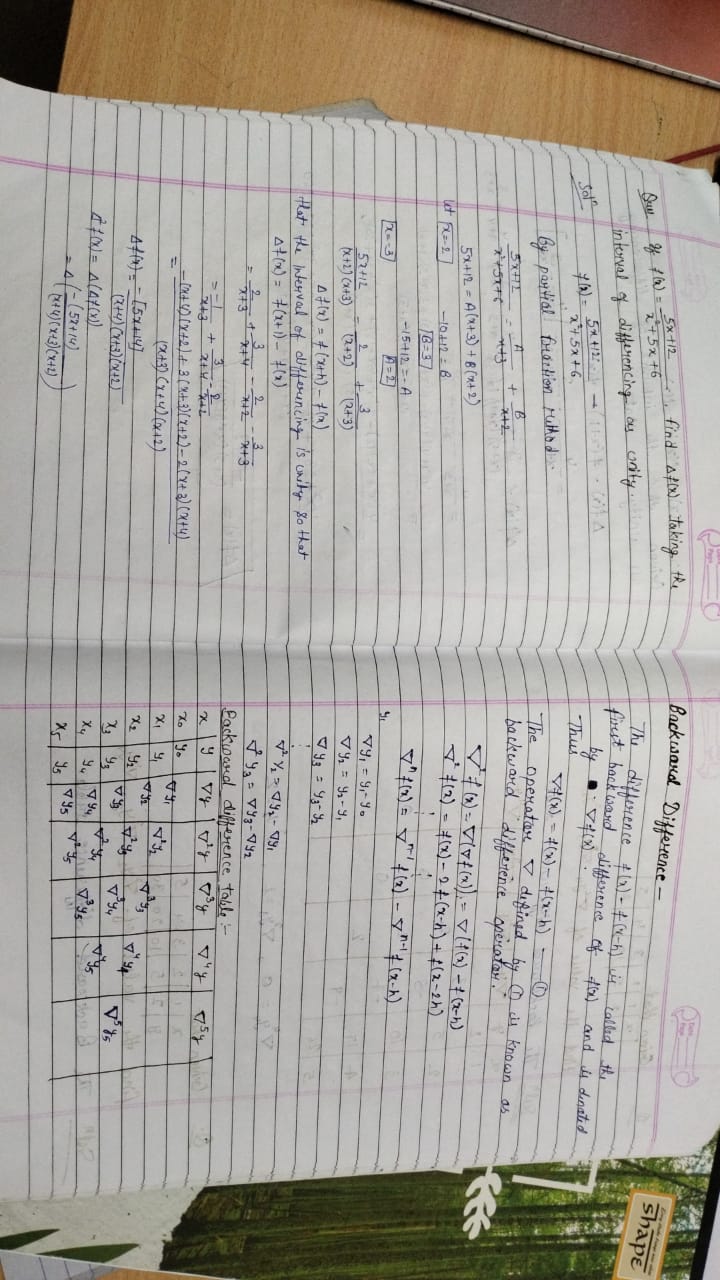 Ques If f(x) = (5x+12)/(x²+5x+6), find Δf(x) taking the
interval of differencing as unity.
Solⁿ f(x) = (5x+12)/(x²+5x+6) →
By partial fraction method.
(5x+12)/(x²+5x+6) = A/(x+3) + B/(x+2)
5x+12 = A(x+3) + B(x+2)
let x=-2 -10+12 = B
B=3
-15+12 = -A
x=-3 A=2
(5x+12)/((x+2)(x+3)) = 2/(x+2) + 3/(x+3)
Δf(x) = f(x+h) - f(x)
that the interval of differencing is unity so that
Δf(x) = f(x+1) - f(x)
= 2/(x+3) + 3/(x+4) - 2/(x+2) - 3/(x+3)
= -1/(x+3) + 3/(x+4) - 2/(x+2)
= (-(x+4)(x+2) + 3(x+3)(x+2) - 2(x+3)(x+4))/((x+3)(x+4)(x+2))
Δf(x) = -[5x+14]/((x+4)(x+3)(x+2))
Δ²f(x) = Δ(Δf(x))
= Δ(-(5x+14)/((x+4)(x+3)(x+2)))
Backward Difference —
The difference f(x) - f(x-h) is called the
first backward difference of f(x) and is denoted
by : ∇f(x).
Thus
∇f(x) = f(x) - f(x-h) — ①
The operator ∇ defined by ① is known as
backward difference operator.
∇² f(x) = ∇(∇f(x)) = ∇(f(x) - f(x-h)
∇² f(x) = f(x) - 2f(x-h) + f(x-2h)
∇ⁿ f(x) = ∇ⁿ⁻¹ f(x) - ∇ⁿ⁻¹ f(x-h)
y₁
∇y₁ = y₁ - y₀
∇y₂ = y₂ - y₁
∇y₃ = y₃ - y₂
∇² y₂ = ∇y₂ - ∇y₁
∇² y₃ = ∇y₃ - ∇y₂
Backward difference table:-
x y ∇y ∇²y ∇³y ∇⁴y ∇⁵y
x₀ y₀
∇y₁
x₁ y₁ ∇²y₂
∇y₂ ∇³y₃
x₂ y₂ ∇²y₃ ∇⁴y₄
∇y₃ ∇³y₄ ∇⁵y₅
x₃ y₃ ∇²y₄ ∇⁴y₅
∇y₄ ∇³y₅
x₄ y₄ ∇²y₅
∇y₅
x₅ y₅
SHAPE